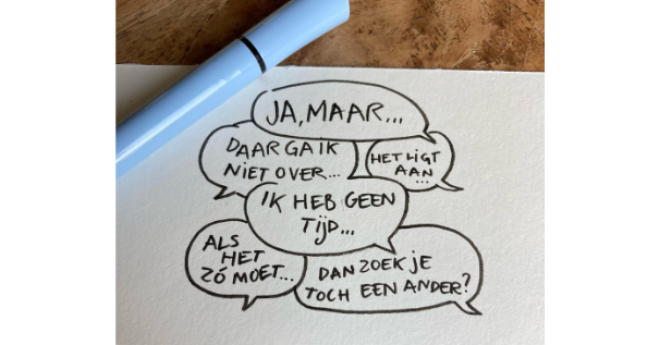 JA, MAAR...
DAAR GA IK
NIET OVER...
HET LIGT
AAN...
IK HEB GEEN
TIJD...
ALS
HET
ZÓ MOET...
DAN ZOEK JE
TOCH EEN ANDER?